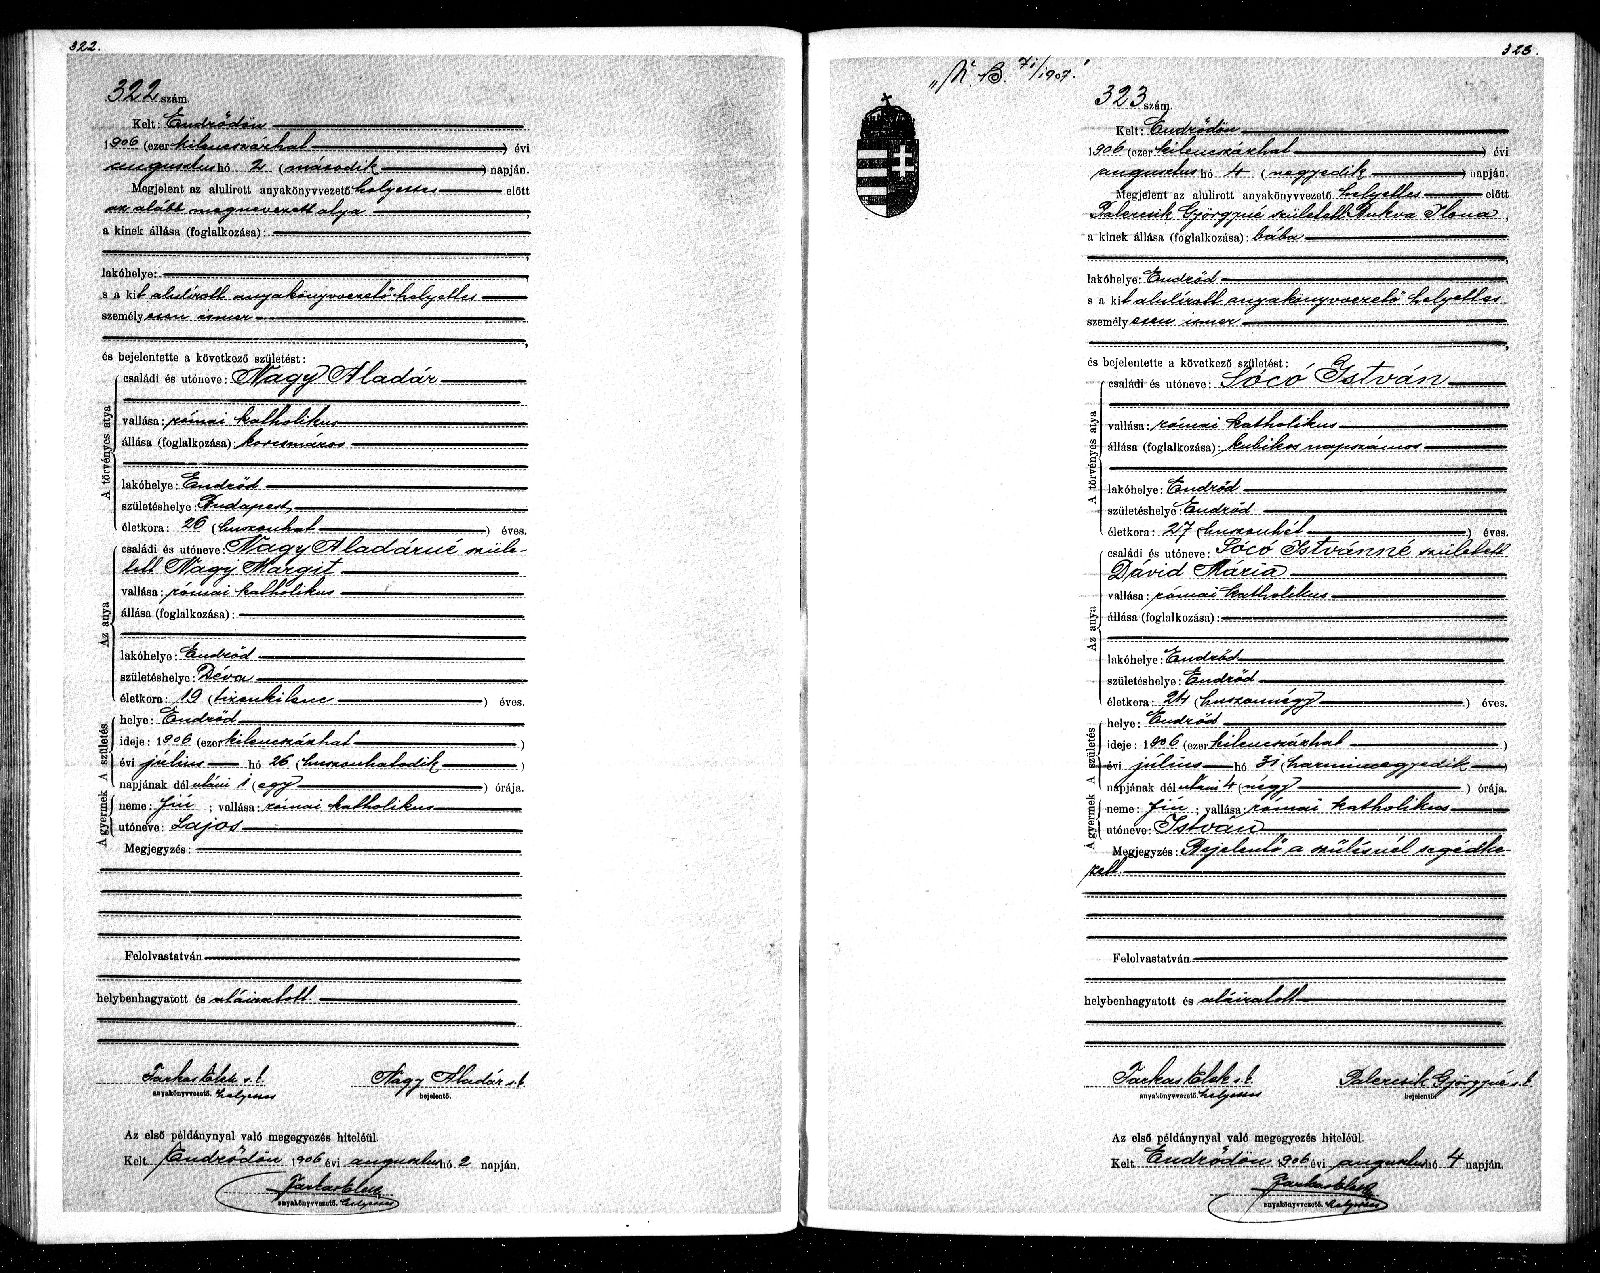 322.
322 szám.
Kelt: Endrődön
1906 (ezer kilencszázhat) évi
augusztus hó 2 (második) napján.
Megjelent az alulirott anyakönyvvezető helyettes előtt
az alább megnevezett atya
a kinek állása (foglalkozása):
lakóhelye:
s a kit alulírott anyakönyvvezető helyettes
személyesen ismer
és bejelentette a következő születést:
A törvényes atya
családi és utóneve: Nagy Aladár
vallása: római katholikus
állása (foglalkozása): korcsmáros
lakóhelye: Endrőd
születéshelye: Budapest,
életkora: 26 (huszonhat) éves.
Az anya
családi és utóneve: Nagy Aladárné szüle-
tett Nagy Margit
vallása: római katholikus
állása (foglalkozása):
lakóhelye: Endrőd
születéshelye: Déva
életkora: 19 (tizenkilenc) éves.
A gyermek A születés
helye: Endrőd
ideje: 1906 (ezer kilencszázhat)
évi július hó 26 (huszonhatodik)
napjának dél utáni 1 (egy) órája.
neme: fiú; vallása: római katholikus
utóneve: Lajos
Megjegyzés:
Felolvastatván
helybenhagyatott és aláiratott
Farkas Elek s.k. Nagy Aladár s.k.
anyakönyvvezető. helyettes bejelentő.
Az első példánynyal való megegyezés hiteléül.
Kelt Endrődön 1906 évi augusztus hó 2 napján.
Farkas Elek
anyakönyvvezető. helyettes
323.
71/1907.
323 szám.
Kelt: Endrődön
1906 (ezer kilencszázhat) évi
augusztus hó 4 (negyedik) napján.
Megjelent az alulirott anyakönyvvezető helyettes előtt
Palercsik Györgyné született Bukva Ilona,
a kinek állása (foglalkozása): bába
lakóhelye: Endrőd
s a kit alulírott anyakönyvvezető helyettes
személyesen ismer
és bejelentette a következő születést:
A törvényes atya
családi és utóneve: Sócó István
vallása: római katholikus
állása (foglalkozása): kubikos napszámos
lakóhelye: Endrőd
születéshelye: Endrőd
életkora: 27 (huszonhét) éves.
Az anya
családi és utóneve: Sócó Istvánné született
Dávid Mária
vallása: római katholikus
állása (foglalkozása):
lakóhelye: Endrőd
születéshelye: Endrőd
életkora: 24 (huszonnégy) éves.
A gyermek A születés
helye: Endrőd
ideje: 1906 (ezer kilencszázhat)
évi július hó 31 (harmincegyedik)
napjának dél utáni 4 (négy) órája.
neme: fiú; vallása: római katholikus
utóneve: István
Megjegyzés: Bejelentő a szülésnél segédke-
zett.
Felolvastatván
helybenhagyatott és aláiratott
Farkas Elek s.k. Palercsik Györgyné s.k.
anyakönyvvezető. helyettes bejelentő.
Az első példánynyal való megegyezés hiteléül.
Kelt Endrődön 1906 évi augusztus hó 4 napján.
Farkas Elek
anyakönyvvezető. helyettes